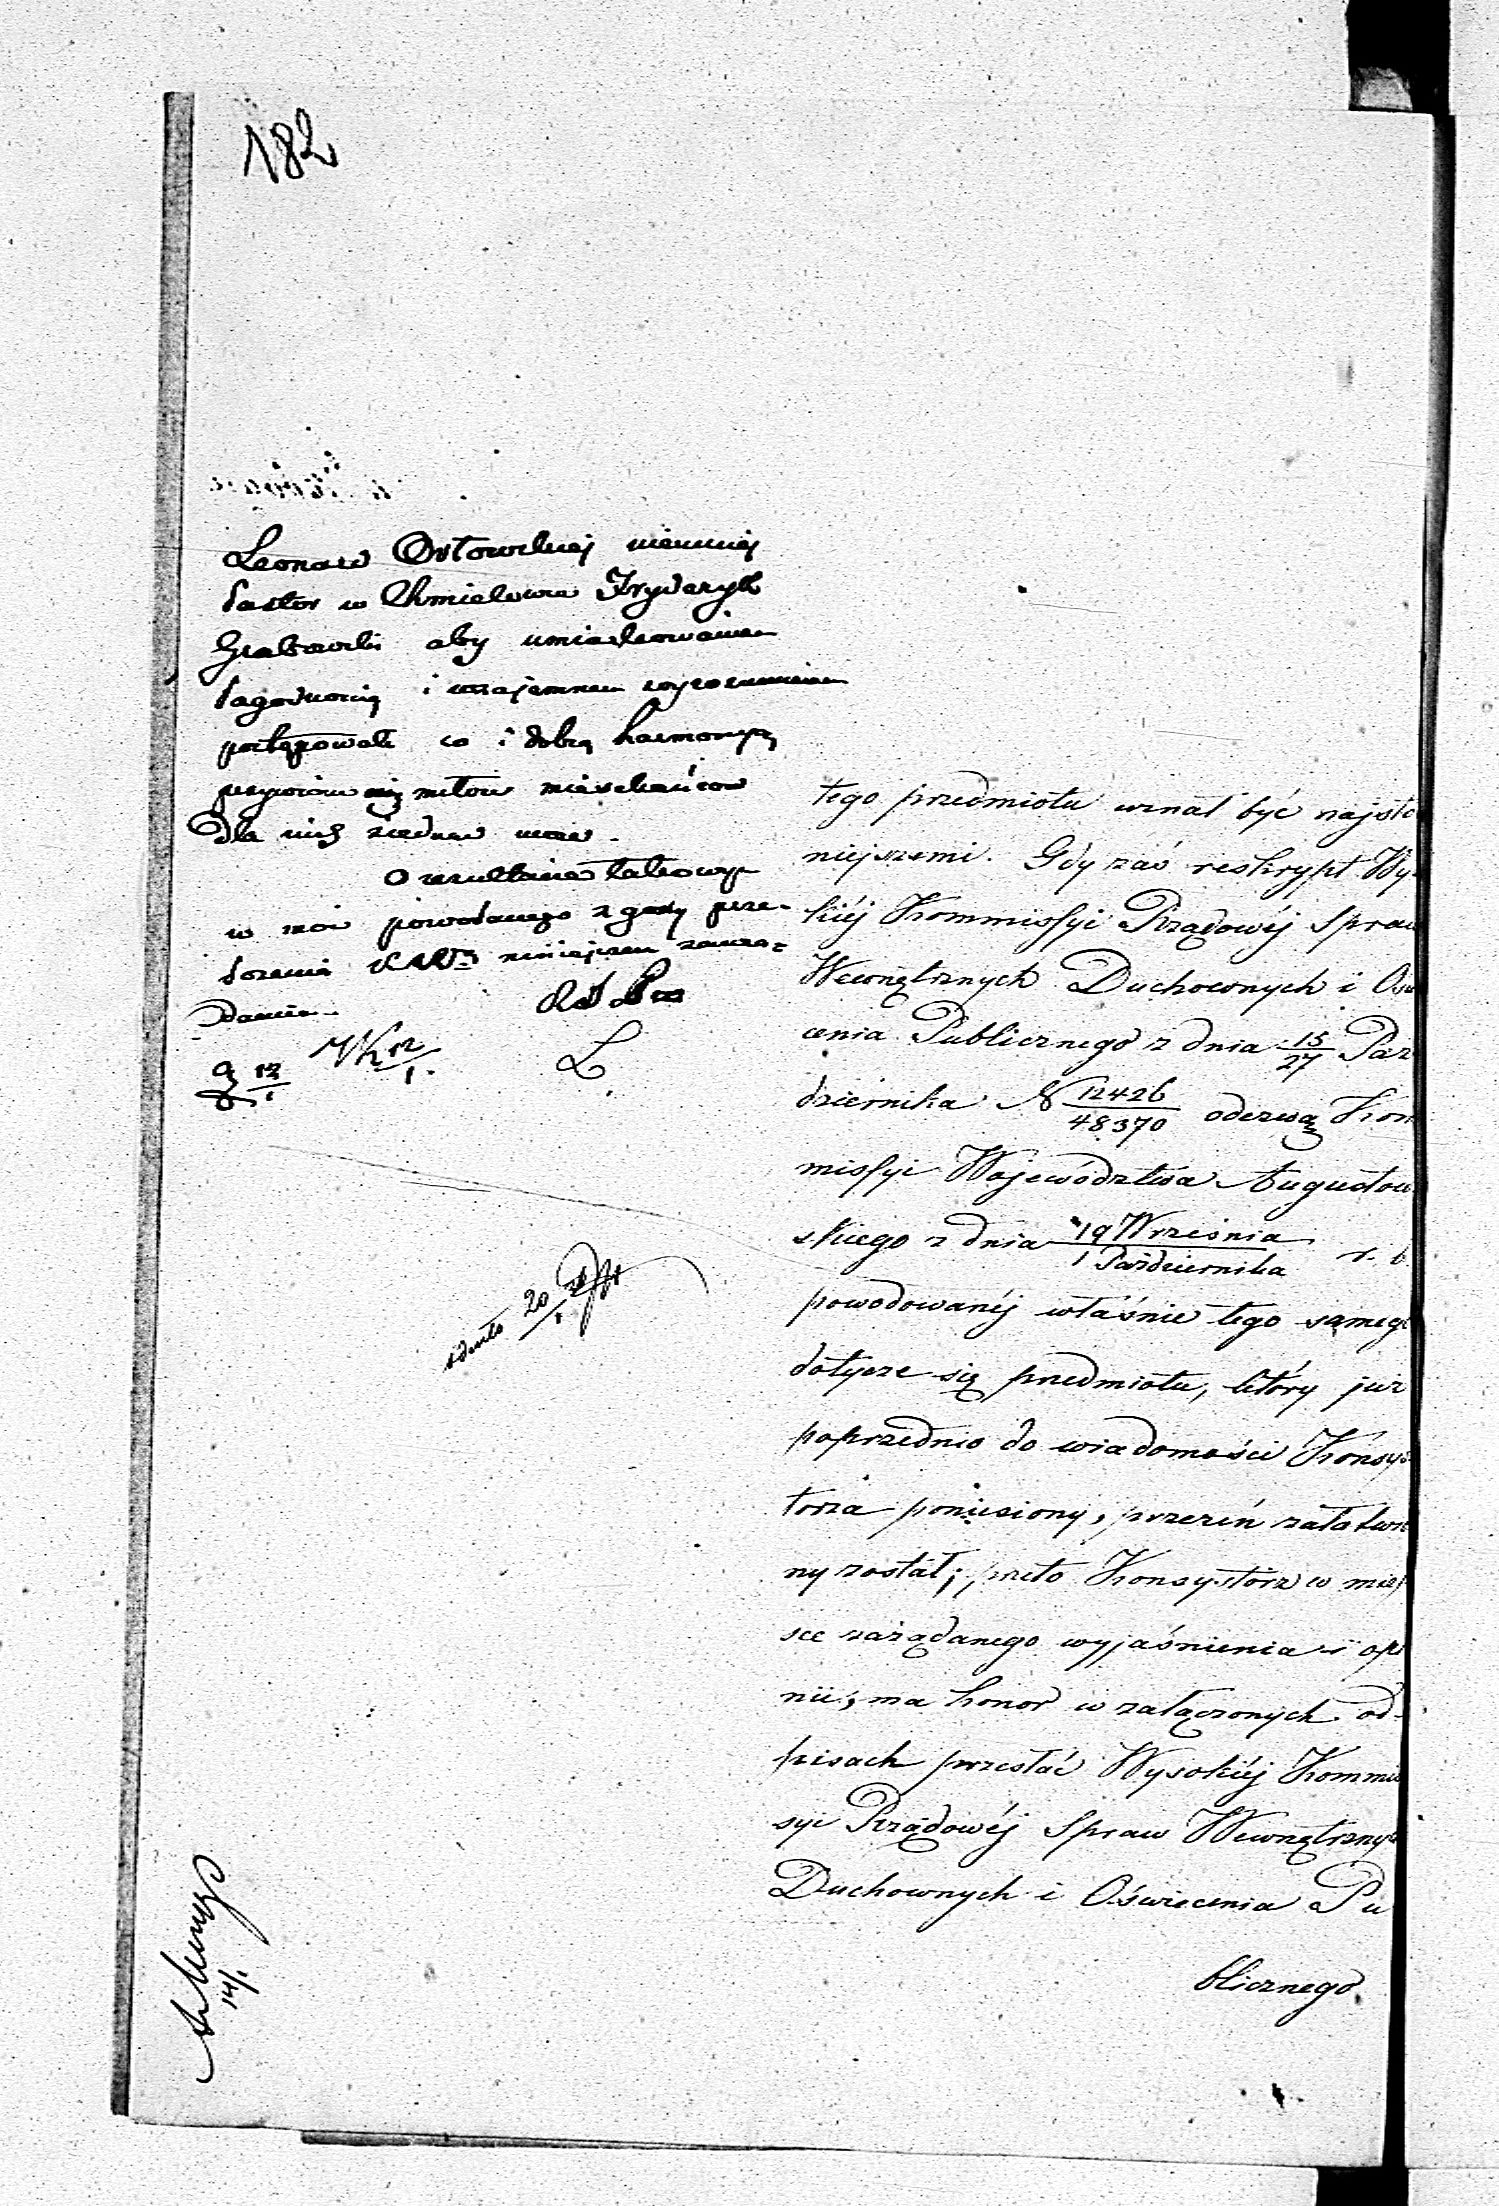 182
Leonard Orłowskiej niemniej
Pastor w Chmielewie Fryderyk
Grabowski aby umiarkowaniem
łagodnością i wzajemnem wyrozumieniem
postępowali co i dobrą harmonyą
przywróci miłość mieszkańców
Dla nich zjednać może.
O rezultacie takowych
w moc powołanego zgody prze-
łożenia niniejszem zawia-
Damia.
12/1
12/1
L.
20/1
14/1
tego przedmiotu uznał być najsto
niejszemi. Gdy zaś reskrypt Wy
kiéj Kommissyi Rządowéj Spraw
Wewnętrznych Duchownych i Oś
cenia Publicznego z dnia 15/27 Paź
dziernika N 12426/48370 odezwą Kom
missyi Województwa Augustow
skiego z dnia 19 Września/1 Października r. b
powodowanéj właśnie tego sameg
dotycze się przedmiotu, który już
poprzednio do wiadomości Konsys
torza poniesiony, przezeń załatwio
ny został; przeto Konsystorz w miej
sce zażądanego wyjaśnienia i opi
nii, ma honor w załączonych od-
pisach przesłać Wysokiéj Kommis
syi Rządowéj Spraw Wewnętrznych
Duchownych i Oświecenia Pu
blicznego